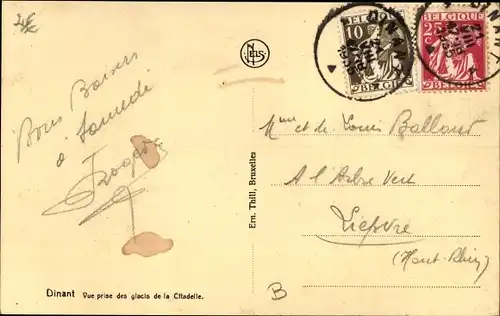 NELS
BELGIQUE
10 c
BELGIE
BELGIQUE
25 c
BELGIE
DINANT
DINANT
Bons Baisers
à Samedi
Mme et de Louis Balland
A l'Arbre Vert
Liepvre
(Haut-Rhin)
Ern. Thill, Bruxelles
Dinant Vue prise des glacis de la Citadelle.
B